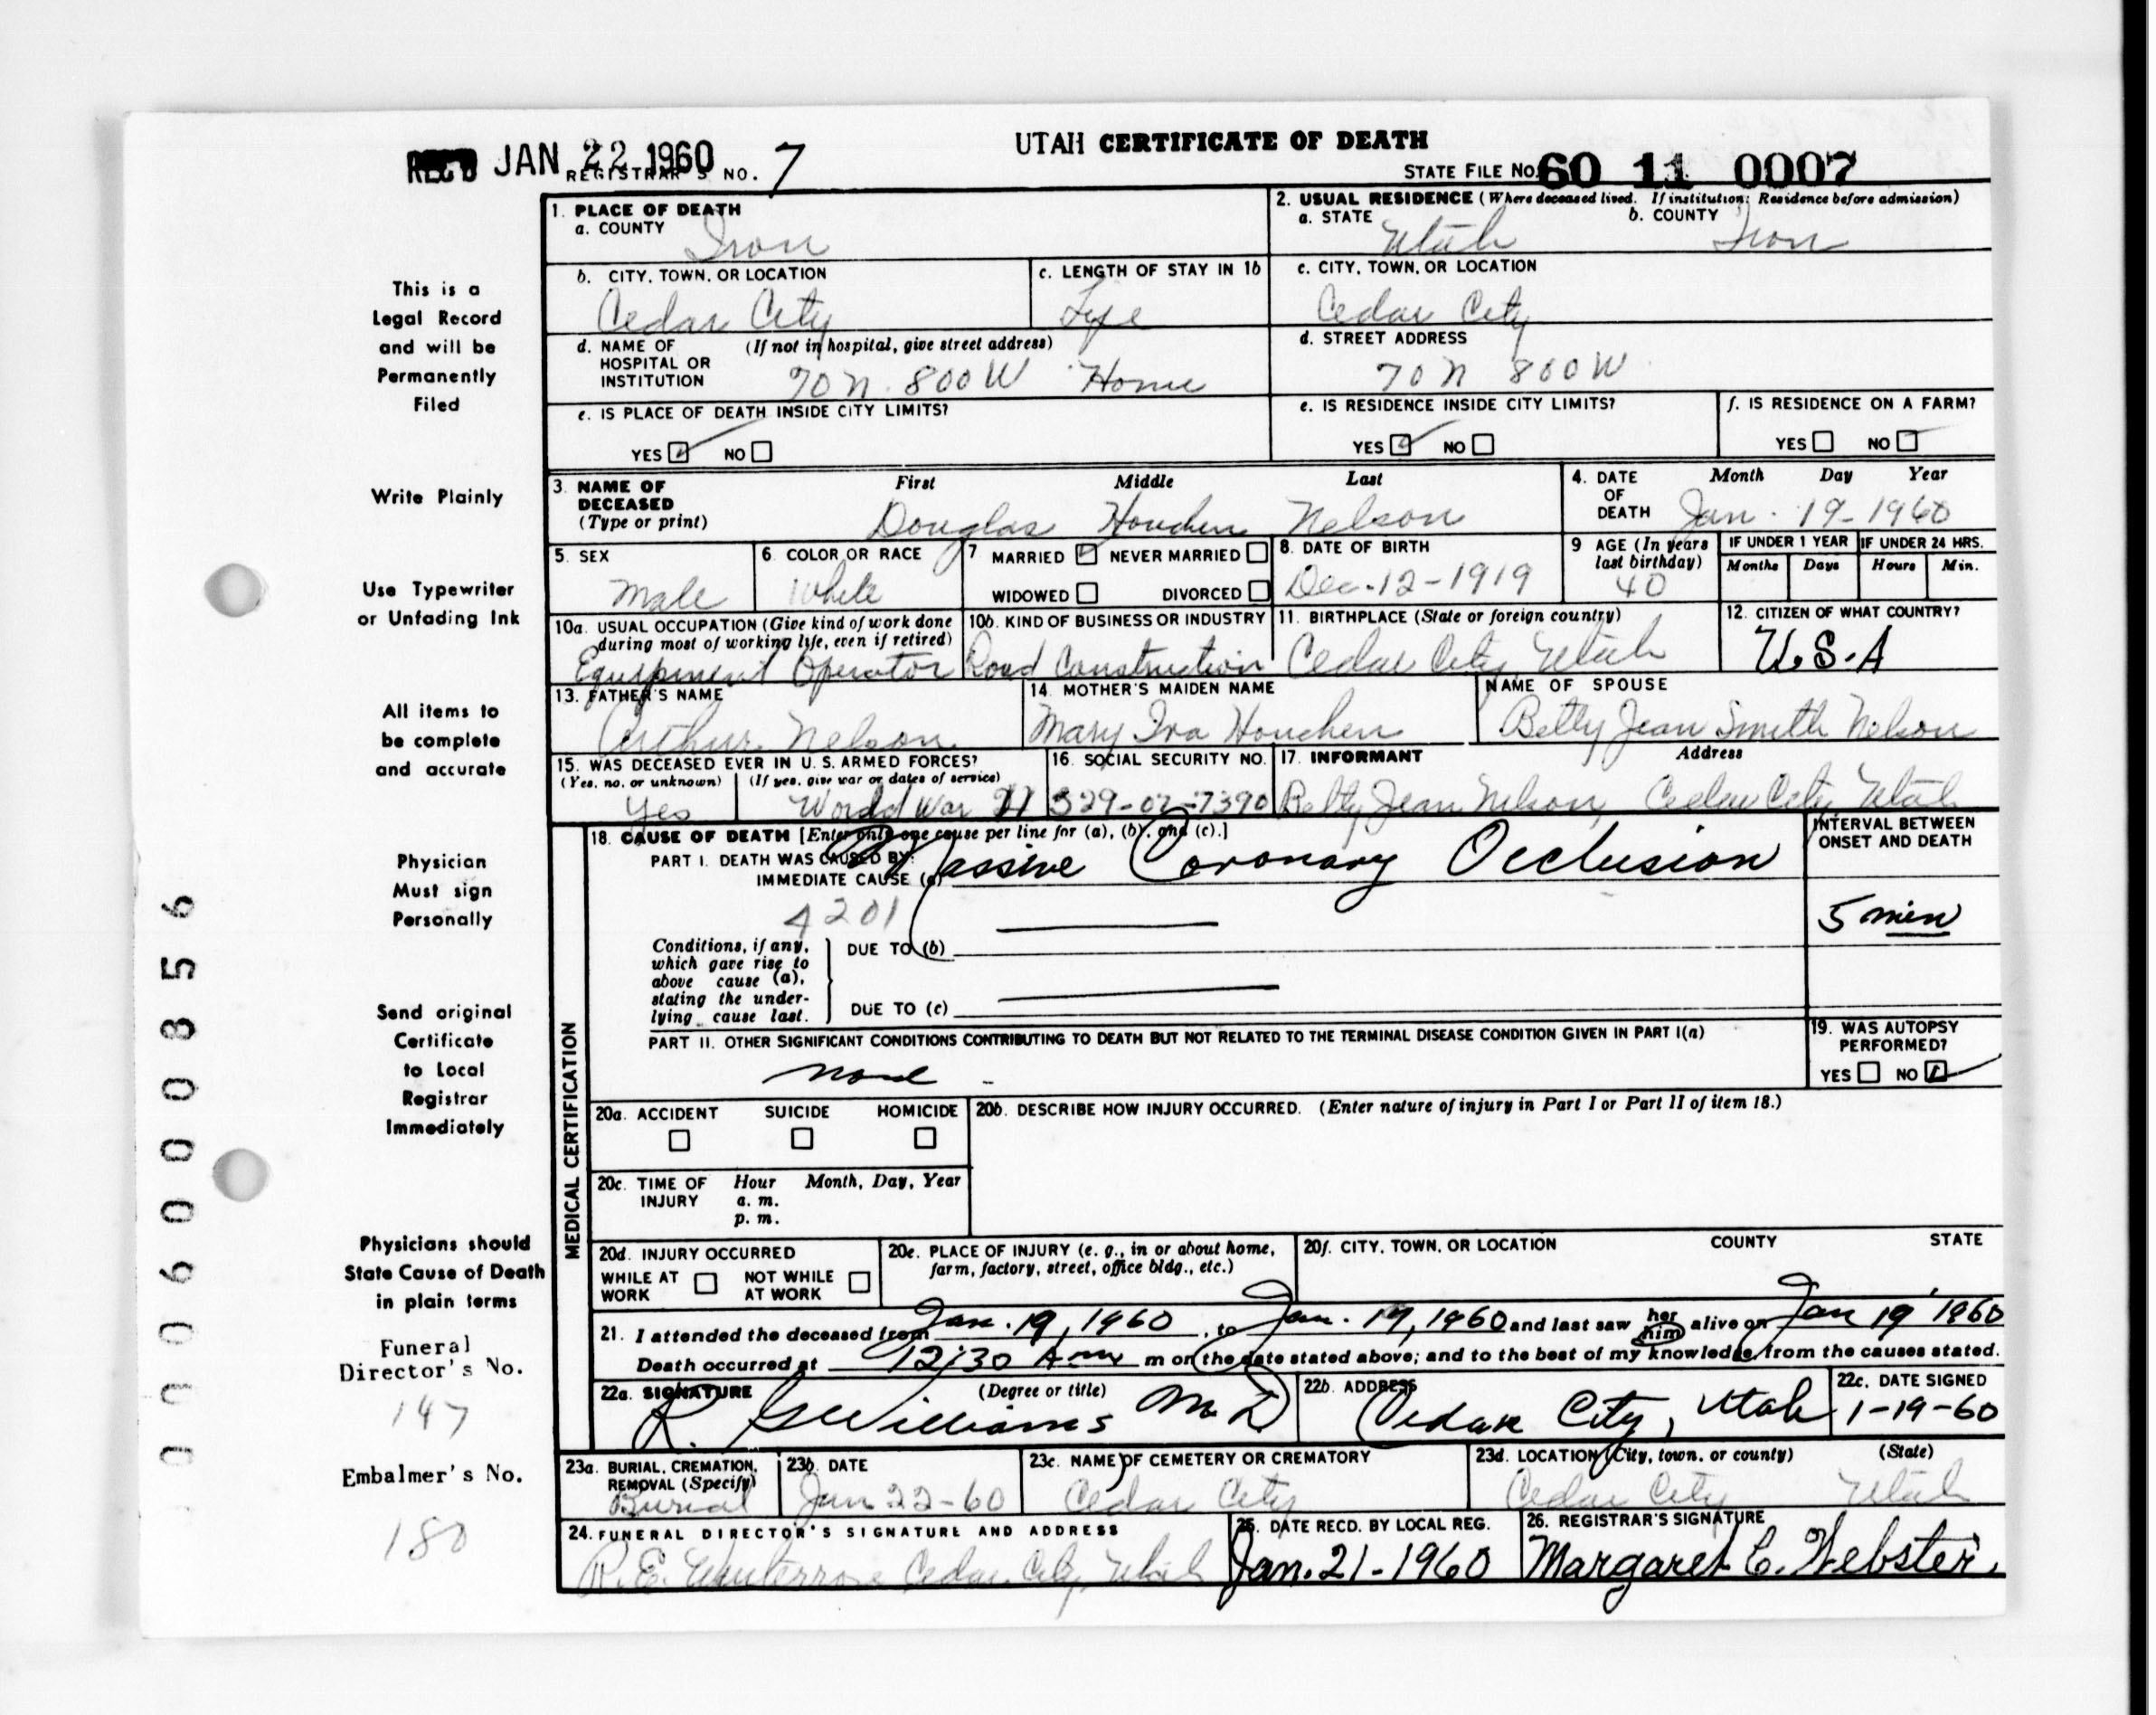 REC'D JAN 22 1960
REGISTRAR'S NO. 7
UTAH CERTIFICATE OF DEATH
STATE FILE NO. 60 11 0007
This is a
Legal Record
and will be
Permanently
Filed
Write Plainly
Use Typewriter
or Unfading Ink
All items to
be complete
and accurate
Physician
Must sign
Personally
Send original
Certificate
to Local
Registrar
Immediately
Physicians should
State Cause of Death
in plain terms
Funeral
Director's No.
147
Embalmer's No.
180
000600856
1. PLACE OF DEATH
a. COUNTY
Iron
2. USUAL RESIDENCE (Where deceased lived. If institution: Residence before admission)
a. STATE Utah b. COUNTY Iron
b. CITY, TOWN, OR LOCATION
Cedar City
c. LENGTH OF STAY IN 1b
Life
c. CITY, TOWN, OR LOCATION
Cedar City
d. NAME OF HOSPITAL OR INSTITUTION (If not in hospital, give street address)
70 N. 800 W Home
d. STREET ADDRESS
70 N 800 W
e. IS PLACE OF DEATH INSIDE CITY LIMITS?
YES NO
e. IS RESIDENCE INSIDE CITY LIMITS?
YES NO
f. IS RESIDENCE ON A FARM?
YES NO
3. NAME OF DECEASED (Type or print)
First Middle Last
Douglas Houchen Nelson
4. DATE OF DEATH Month Day Year
Jan. 19-1960
5. SEX
Male
6. COLOR OR RACE
White
7 MARRIED NEVER MARRIED
WIDOWED DIVORCED
8. DATE OF BIRTH
Dec-12-1919
9 AGE (In years last birthday)
40
IF UNDER 1 YEAR IF UNDER 24 HRS.
Months Days Hours Min.
10a. USUAL OCCUPATION (Give kind of work done during most of working life, even if retired)
Equipment Operator
10b. KIND OF BUSINESS OR INDUSTRY
Road Construction
11. BIRTHPLACE (State or foreign country)
Cedar City Utah
12. CITIZEN OF WHAT COUNTRY?
U.S.A
13. FATHER'S NAME
Arthur Nelson
14. MOTHER'S MAIDEN NAME
Mary Iva Houchen
NAME OF SPOUSE
Betty Jean Smith Nelson
15. WAS DECEASED EVER IN U.S. ARMED FORCES?
(Yes, no, or unknown) (If yes, give war or dates of service)
Yes World War II
16. SOCIAL SECURITY NO.
529-07-7390
17. INFORMANT Address
Betty Jean Nelson, Cedar City Utah
MEDICAL CERTIFICATION
18. CAUSE OF DEATH [Enter only one cause per line for (a), (b), and (c).]
PART I. DEATH WAS CAUSED BY:
IMMEDIATE CAUSE (a) Massive Coronary Occlusion
4201
INTERVAL BETWEEN ONSET AND DEATH
5 min
Conditions, if any, which gave rise to above cause (a), stating the underlying cause last.
DUE TO (b)
DUE TO (c)
PART II. OTHER SIGNIFICANT CONDITIONS CONTRIBUTING TO DEATH BUT NOT RELATED TO THE TERMINAL DISEASE CONDITION GIVEN IN PART I(a)
none -
19. WAS AUTOPSY PERFORMED?
YES NO
20a. ACCIDENT SUICIDE HOMICIDE
20b. DESCRIBE HOW INJURY OCCURRED. (Enter nature of injury in Part I or Part II of item 18.)
20c. TIME OF INJURY Hour Month, Day, Year
a. m.
p. m.
20d. INJURY OCCURRED
WHILE AT WORK NOT WHILE AT WORK
20e. PLACE OF INJURY (e. g., in or about home, farm, factory, street, office bldg., etc.)
20f. CITY, TOWN, OR LOCATION COUNTY STATE
21. I attended the deceased from Jan. 19, 1960, to Jan. 19, 1960 and last saw her him alive on Jan 19 1960
Death occurred at 12:30 A m m on the date stated above; and to the best of my knowledge, from the causes stated.
22a. SIGNATURE (Degree or title)
R. G Williams M D
22b. ADDRESS
Cedar City, Utah
22c. DATE SIGNED
1-19-60
23a. BURIAL, CREMATION, REMOVAL (Specify)
Burial
23b. DATE
Jan 22-60
23c. NAME OF CEMETERY OR CREMATORY
Cedar City
23d. LOCATION (City, town, or county) (State)
Cedar City Utah
24. FUNERAL DIRECTOR'S SIGNATURE AND ADDRESS
R.E. Winterrose Cedar City, Utah
25. DATE RECD. BY LOCAL REG.
Jan. 21-1960
26. REGISTRAR'S SIGNATURE
Margaret C. Webster.